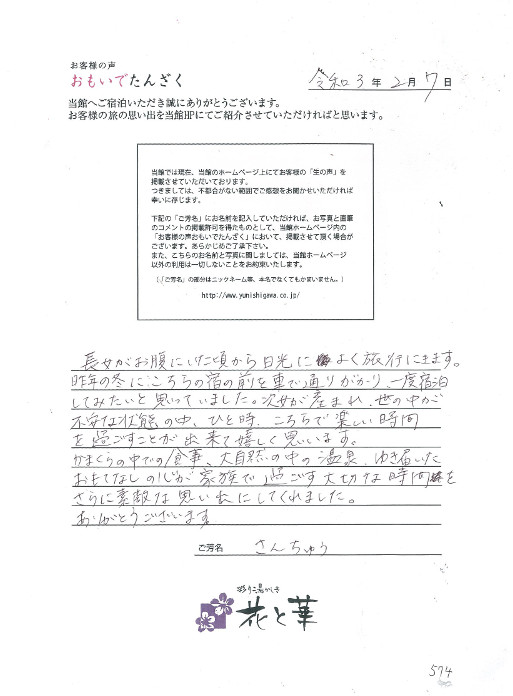 お客様の声
おもいでたんざく
令和3年2月7日
当館へご宿泊いただき誠にありがとうございます。
お客様の旅の思い出を当館HPにてご紹介させていただければと思います。
当館では現在、当館のホームページ上にてお客様の「生の声」を
掲載させていただいております。
つきましては、不都合がない範囲でご感想をお聞かせいただければ
幸いに存じます。
下記の「ご芳名」にお名前を記入していただければ、お写真と直筆
のコメントの掲載許可を得たものとして、当館ホームページ内の
「お客様の声おもいでたんざく」において、掲載させて頂く場合が
ございます。あらかじめご了承下さい。
また、こちらのお名前と写真に関しましては、当館ホームページ
以外の利用は一切しないことをお約束いたします。
(「ご芳名」の部分はニックネーム等、本名でなくてもかまいません。)
http://www.yunishigawa.co.jp/
長女がお腹にいた頃から日光によく旅行にきます。
昨年の冬にこちらの宿の前を車で通りがかり、一度宿泊
してみたいと思っていました。次女が産まれ、世の中が
不安な状態の中、ひと時、こちらで楽しい時間
を過ごすことが出来て嬉しく思います。
かまくらの中での食事、大自然の中の温泉、ゆき届いた
おもてなしの心が家族で過ごす大切な時間を
さらに素敵な思い出にしてくれました。
ありがとうございます
ご芳名 さんちゅう
彩り湯かしき
花と華
574